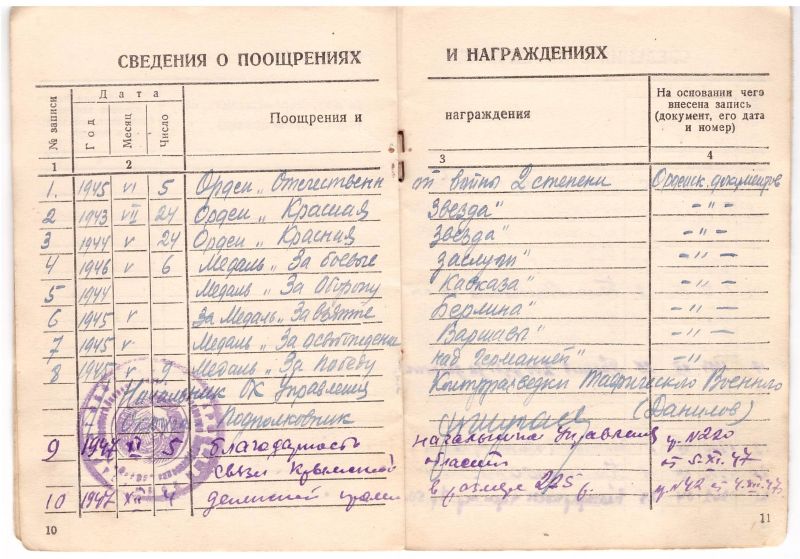 СВЕДЕНИЯ О ПООЩРЕНИЯХ И НАГРАЖДЕНИЯХ
№ записи Дата Поощрения и награждения На основании чего внесена запись (документ, его дата и номер)
Год Месяц Число
1 2 3 4
1. 1945 VI 5 Орден „Отечественн ой войны 2 степени Орденск. документов
2 1943 VII 24 Орден „Красная Звезда" –"–
3 1944 V 24 Орден „Красная Звезда" –"–
4 1946 V 6 Медаль „За боевые заслуги" –"–
5 1944 Медаль „За Оборону Кавказа" –"–
6 1945 V За Медаль „За взятие Берлина" –"–
7 1945 V Медаль „За освобождени Варшавы" –"–
8 1945 V 9 Медаль „За Победу над Германией" –"–
Начальник ОК Управления Контрразведки Таврического Военного
Подполковник (Данилов)
9 1947 XI 5 благодарность начальника Управления пр. №220
связи Крымской области от 5.XI.47
10 1947 XII 4 денежной прем в размере 275 р. пр. №42 от 4.XII.47г.
10 11